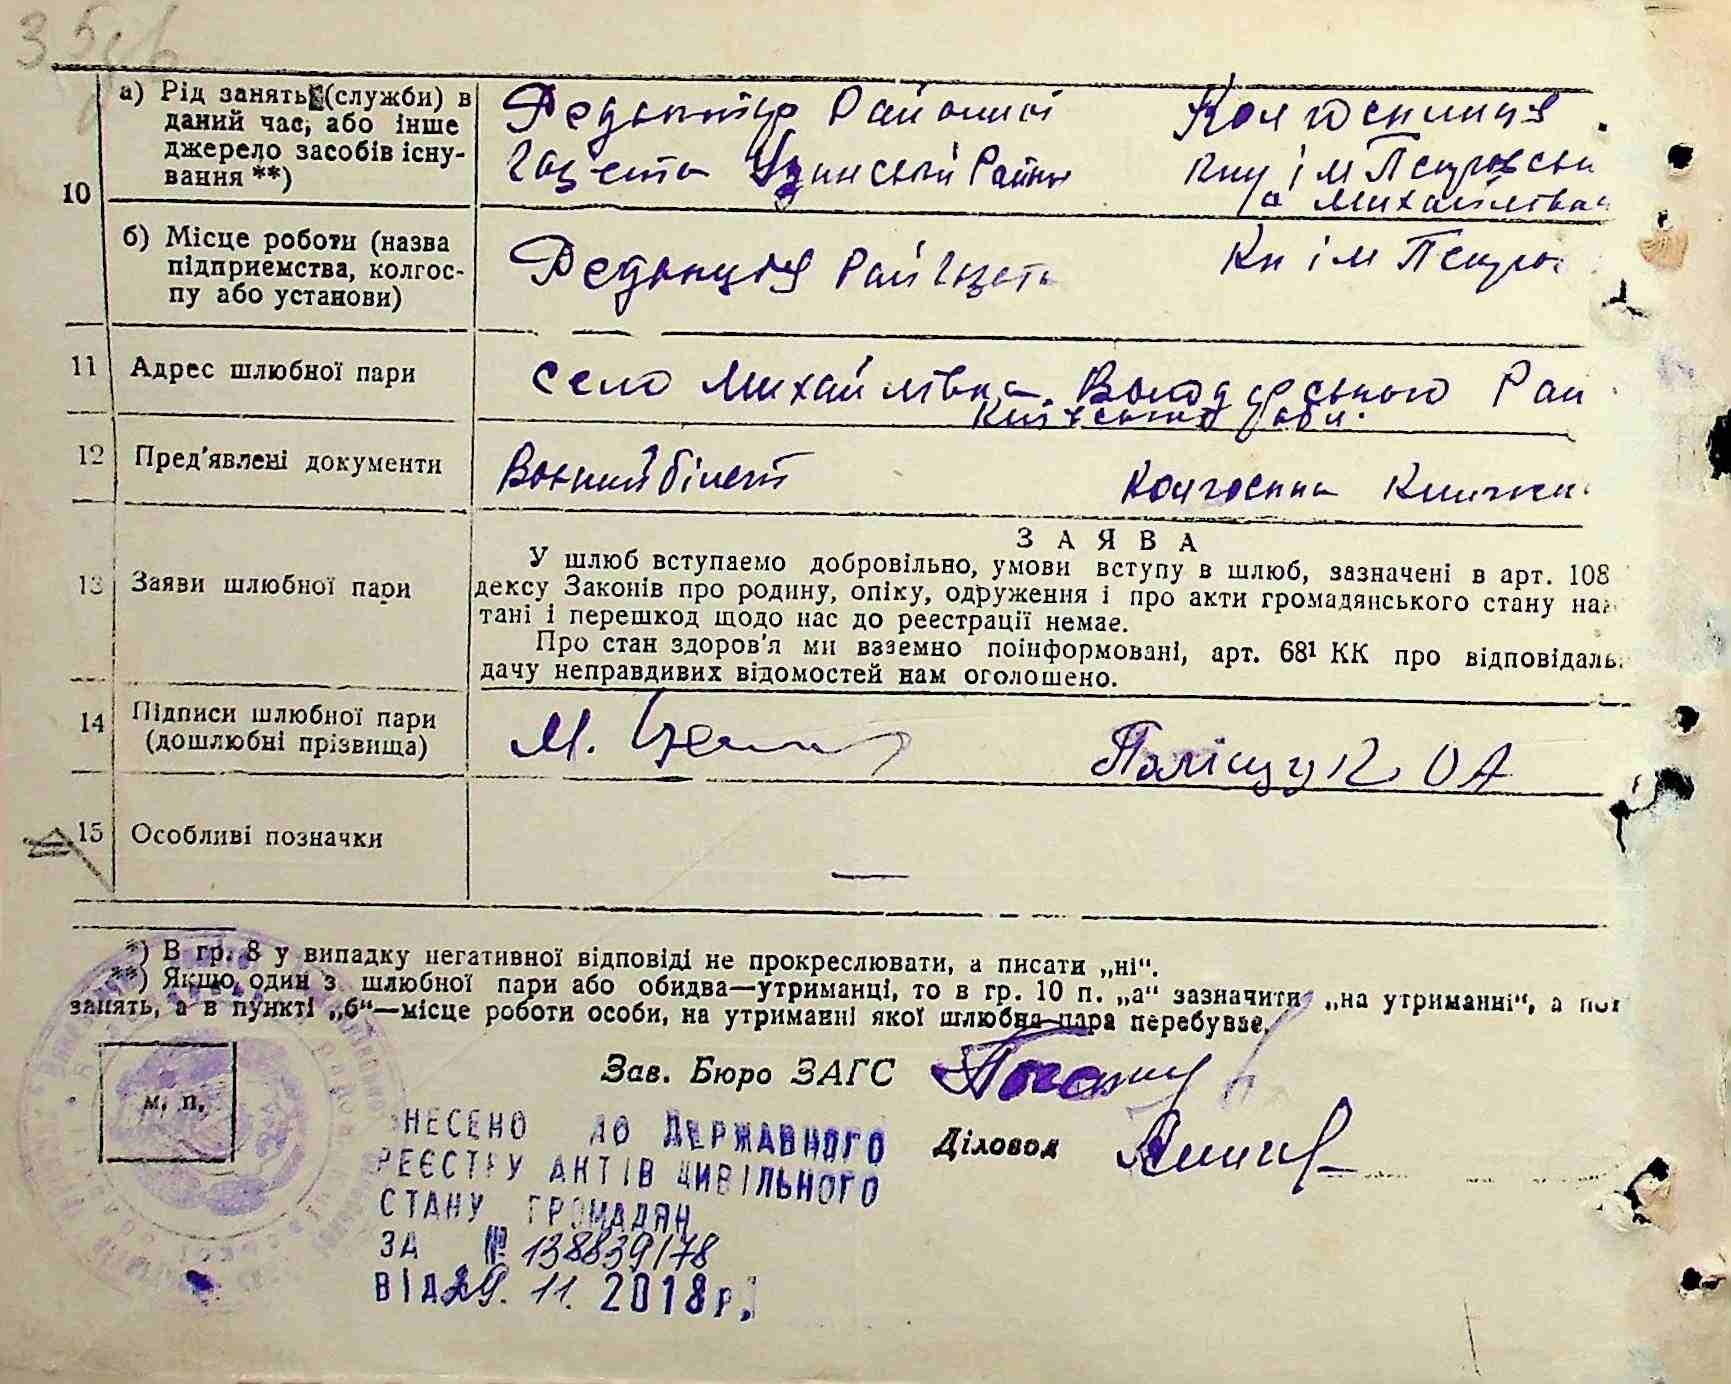 10
а) Рід занять (служби) в
даний час, або інше
джерело засобів існу-
вання **)
Редактор Районної
Газета Узинський Району
Колгоспниця
ім Петровськ
Михайлівка
б) Місце роботи (назва
підприємства, колгос-
пу або установи)
Редакція Рай Газета
Кп ім Петров
11 Адрес шлюбної пари
село Михайлівка. Володарського Рай
Київської обл.
12 Пред'явлені документи
Воєнний білет
Колгоспна Книжка
13 Заяви шлюбної пари
ЗАЯВА
У шлюб вступаємо добровільно, умови вступу в шлюб, зазначені в арт. 108
дексу Законів про родину, опіку, одруження і про акти громадянського стану на
тані і перешкод щодо нас до реєстрації немає.
Про стан здоров'я ми взаємно поінформовані, арт. 68¹ КК про відповідаль
дачу неправдивих відомостей нам оголошено.
14 Підписи шлюбної пари
(дошлюбні прізвища)
М.
Поліщук О А
15 Особливі позначки
—
*) В гр. 8 у випадку негативної відповіді не прокреслювати, а писати „ні“.
**) Якщо один з шлюбної пари або обидва—утриманці, то в гр. 10 п. „а“ зазначити „на утриманні“, а
занять, а в пункті „б“—місце роботи особи, на утриманні якої шлюбна пара перебуває.
м. п.
Зав. Бюро ЗАГС
Діловод
НЕСЕНО ДО ДЕРЖАВНОГО
РЕЄСТРУ АКТІВ ЦИВІЛЬНОГО
СТАНУ ГРОМАДЯН
ЗА № 138839178
ВІД 29. 11. 2018 р.